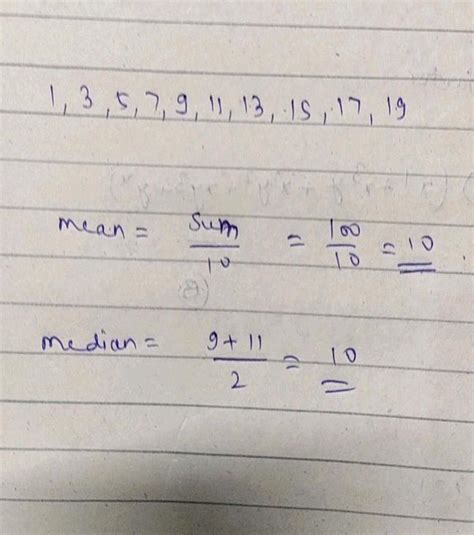 1, 3, 5, 7, 9, 11, 13, 15, 17, 19
mean = Sum/10 = 100/10 = 10.
median = 9+11/2 = 10